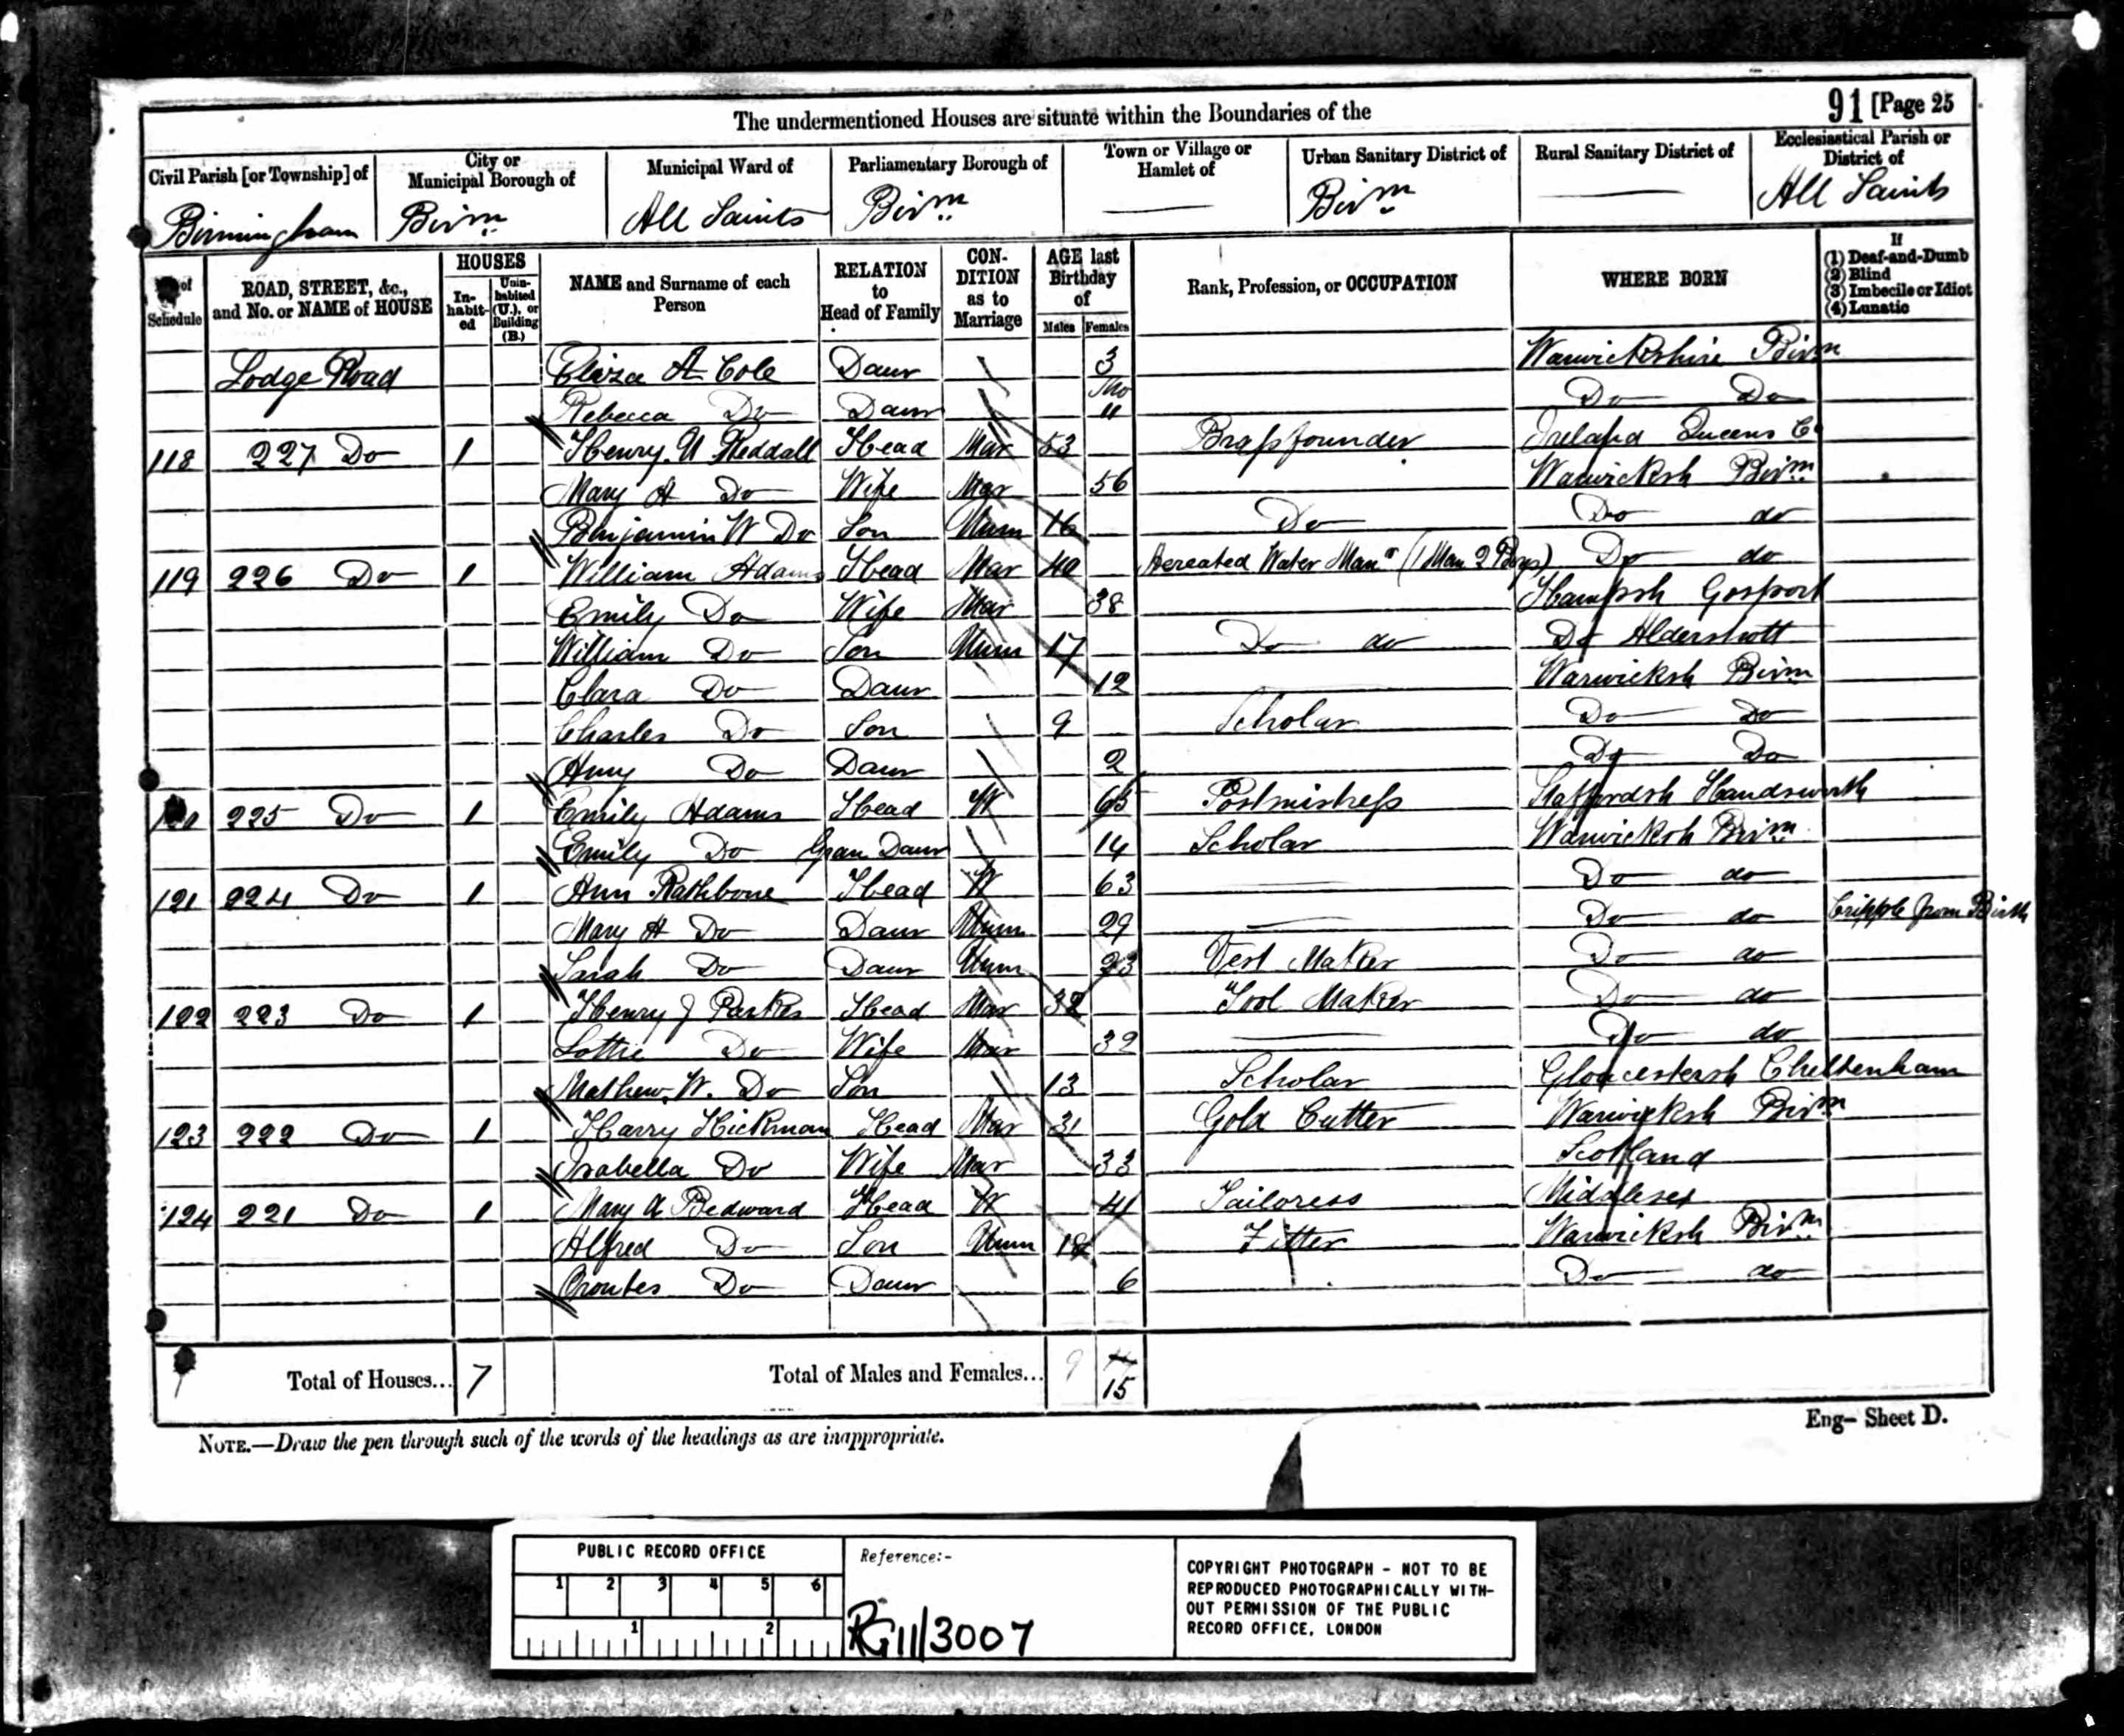 The undermentioned Houses are situate within the Boundaries of the
91 [Page 25
Civil Parish [or Township] of
City or Municipal Borough of
Municipal Ward of
Parliamentary Borough of
Town or Village or Hamlet of
Urban Sanitary District of
Rural Sanitary District of
Ecclesiastical Parish or District of
Birmingham Birm All Saints Birm Birm All Saints
of Schedule
ROAD, STREET, &c., and No. or NAME of HOUSE
HOUSES
In-habit-ed
Unin-habited (U.), or Building (B.)
NAME and Surname of each Person
RELATION to Head of Family
CON-DITION as to Marriage
AGE last Birthday of
Males Females
Rank, Profession, or OCCUPATION
WHERE BORN
If
(1) Deaf-and-Dumb
(2) Blind
(3) Imbecile or Idiot
(4) Lunatic
Lodge Road Eliza A Cole Daur 3 Warwickshire Birm
Rebecca Do Daur 11 Mo Do Do
118 227 Do 1 Henry Reddall Head Mar 53 Brassfounder Ireland Queens C
Mary A Do Wife Mar 56 Warwicksh Birm
Benjamin W Do Son Unm 16 Do Do do
119 226 Do 1 William Adams Head Mar 40 Aereated Water Man (1 Man 2 Boys) Do do
Emily Do Wife Mar 38 Hampsh Gosport
William Do Son Unm 17 Do do Do Aldershott
Clara Do Daur 12 Warwicksh Birm
Charles Do Son 9 Scholar Do Do
Amy Do Daur 2 Do Do
120 225 Do 1 Emily Adams Head W 65 Postmistress Staffordsh Handsworth
Emily Do Gran Daur 14 Scholar Warwicksh Birm
121 224 Do 1 Ann Rathbone Head W 63 Do do
Mary A Do Daur Unm 29 Do do Cripple from Birth
Sarah Do Daur Unm 23 Vest Maker Do do
122 223 Do 1 Henry J Parkes Head Mar 32 Tool Maker Do do
Lottie Do Wife Mar 32 Do do
Mathew W. Do Son 13 Scholar Gloucestersh Cheltenham
123 222 Do 1 Harry Hickman Head Mar 31 Gold Cutter Warwicksh Birm
Isabella Do Wife Mar 33 Scotland
124 221 Do 1 Mary A Bedward Head W 41 Tailoress Middlesex
Alfred Do Son Unm 18 Fitter Warwicksh Birm
Do Daur 6 Do do
Total of Houses... 7 Total of Males and Females... 9 15
NOTE.—Draw the pen through such of the words of the headings as are inappropriate.
Eng— Sheet D.
PUBLIC RECORD OFFICE
1 2 3 4 5 6
1 2
Reference:-
RG11/3007
COPYRIGHT PHOTOGRAPH - NOT TO BE
REPRODUCED PHOTOGRAPHICALLY WITH-
OUT PERMISSION OF THE PUBLIC
RECORD OFFICE, LONDON